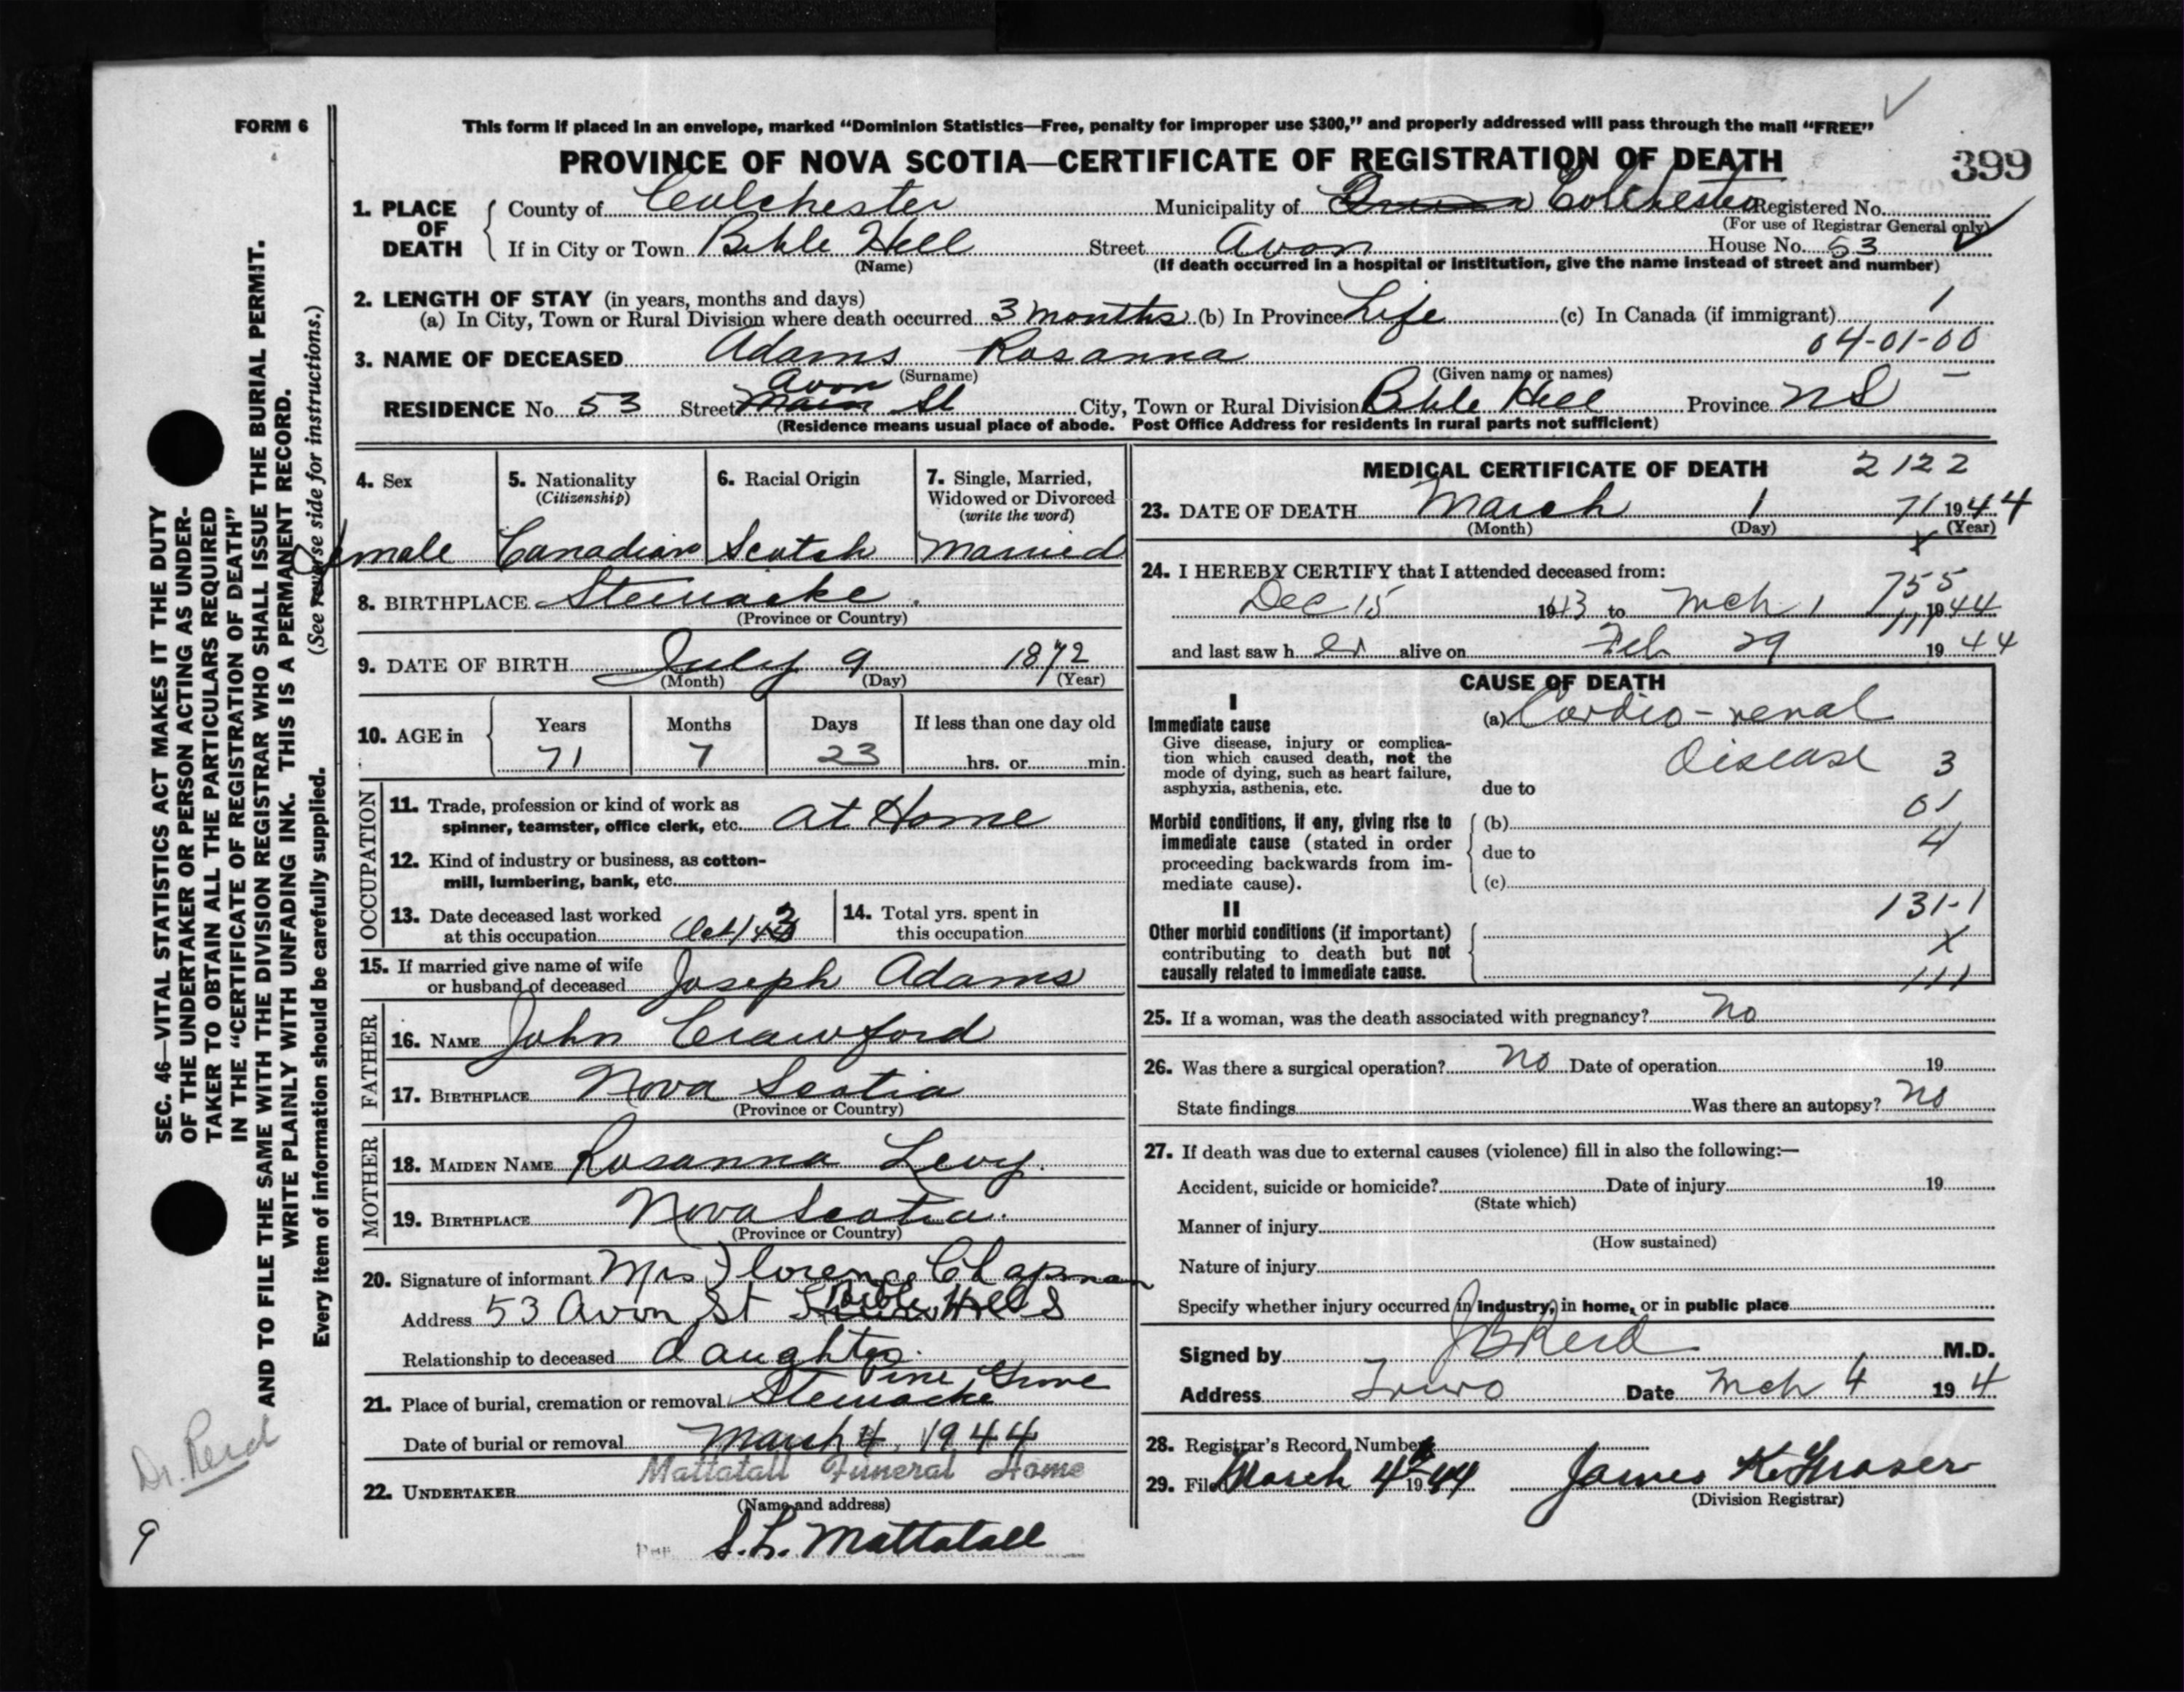 FORM 6
This form if placed in an envelope, marked “Dominion Statistics—Free, penalty for improper use $300,” and properly addressed will pass through the mail “FREE”
PROVINCE OF NOVA SCOTIA—CERTIFICATE OF REGISTRATION OF DEATH
399
1. PLACE OF DEATH County of Colchester Municipality of Colchester Registered No.
(For use of Registrar General only)
If in City or Town Bible Hill Street Avon House No. 53
(Name) (If death occurred in a hospital or institution, give the name instead of street and number)
2. LENGTH OF STAY (in years, months and days)
(a) In City, Town or Rural Division where death occurred 3 months (b) In Province Life (c) In Canada (if immigrant) 1
3. NAME OF DECEASED Adams Rosanna 04-01-00
(Surname) (Given name or names)
Avon
RESIDENCE No. 53 Street Main St City, Town or Rural Division Bible Hill Province NS
(Residence means usual place of abode. Post Office Address for residents in rural parts not sufficient)
SEC. 46—VITAL STATISTICS ACT MAKES IT THE DUTY
OF THE UNDERTAKER OR PERSON ACTING AS UNDER-
TAKER TO OBTAIN ALL THE PARTICULARS REQUIRED
IN THE “CERTIFICATE OF REGISTRATION OF DEATH”
AND TO FILE THE SAME WITH THE DIVISION REGISTRAR WHO SHALL ISSUE THE BURIAL PERMIT.
WRITE PLAINLY WITH UNFADING INK. THIS IS A PERMANENT RECORD.
Every item of information should be carefully supplied. (See reverse side for instructions.)
4. Sex 5. Nationality 6. Racial Origin 7. Single, Married,
(Citizenship) Widowed or Divorced
(write the word)
female Canadian Scotch Married
8. BIRTHPLACE Stewiacke
(Province or Country)
9. DATE OF BIRTH July 9 1872
(Month) (Day) (Year)
10. AGE in Years Months Days If less than one day old
71 7 23 hrs. or min.
OCCUPATION
11. Trade, profession or kind of work as
spinner, teamster, office clerk, etc. at Home
12. Kind of industry or business, as cotton-
mill, lumbering, bank, etc.
13. Date deceased last worked 14. Total yrs. spent in
at this occupation this occupation
15. If married give name of wife
or husband of deceased Joseph Adams
FATHER
16. NAME John Crawford
17. BIRTHPLACE Nova Scotia
(Province or Country)
MOTHER
18. MAIDEN NAME Rosanna Levy.
19. BIRTHPLACE Nova Scotia.
(Province or Country)
20. Signature of informant Mrs Florence Chapman
Address 53 Avon St Bible Hill
Relationship to deceased daughter.
Pine Grove
21. Place of burial, cremation or removal Stewiacke
Date of burial or removal March 4, 1944
Mattatall Funeral Home
22. UNDERTAKER
(Name and address)
Per S.L. Mattatall
MEDICAL CERTIFICATE OF DEATH 2122
23. DATE OF DEATH March 1 71 1944
(Month) (Day) (Year)
x
24. I HEREBY CERTIFY that I attended deceased from:
755
Dec 15 1943 to Mch 1 1944
111
and last saw h er alive on Feb 29 1944
CAUSE OF DEATH
I
Immediate cause (a) Cardio-renal
Give disease, injury or complica-
tion which caused death, not the Disease 3
mode of dying, such as heart failure,
asphyxia, asthenia, etc. due to
01
Morbid conditions, if any, giving rise to (b)
immediate cause (stated in order due to 4
proceeding backwards from im-
mediate cause). (c)
131-1
II
Other morbid conditions (if important)
contributing to death but not x
causally related to immediate cause. 111
25. If a woman, was the death associated with pregnancy? No
26. Was there a surgical operation? No Date of operation 19
State findings Was there an autopsy? No
27. If death was due to external causes (violence) fill in also the following:—
Accident, suicide or homicide? Date of injury 19
(State which)
Manner of injury
(How sustained)
Nature of injury
Specify whether injury occurred in industry, in home, or in public place
Signed by J B Reid M.D.
Address Truro Date Mch 4 194
28. Registrar's Record Number
29. Filed March 4th 1944 James K. Fraser
(Division Registrar)
Dr. Reid
9